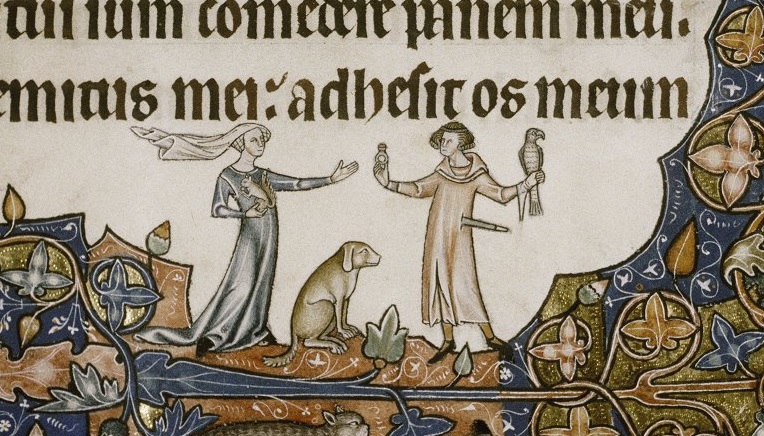 tus sum comedere panem meu.
emitus mei: adhesit os meum